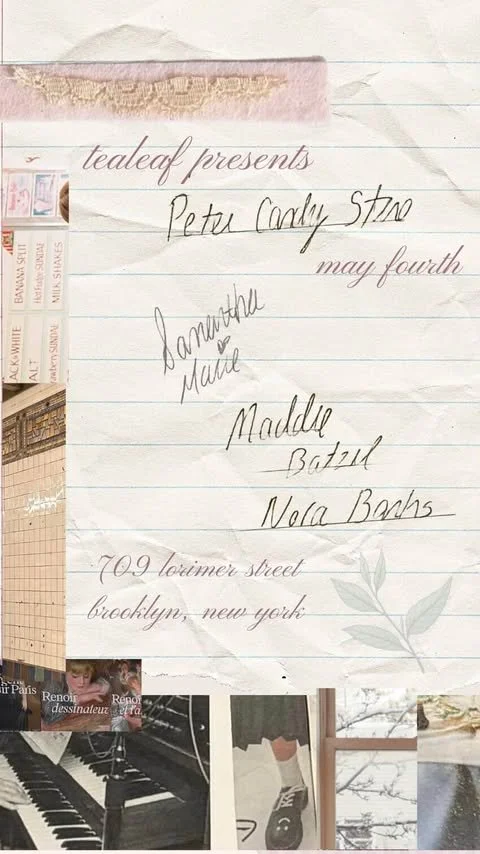 tealeaf presents
may fourth
Samantha
Marie
Maddie
Nora Banks
709 lorimer street
brooklyn, new york
BANANA SPLIT
Hot Fudge SUNDAE
MILK SHAKES
ACK & WHITE
ALT
awberry SUNDAE
ir Paris
Renoir
dessinateur
Reno
et l'a